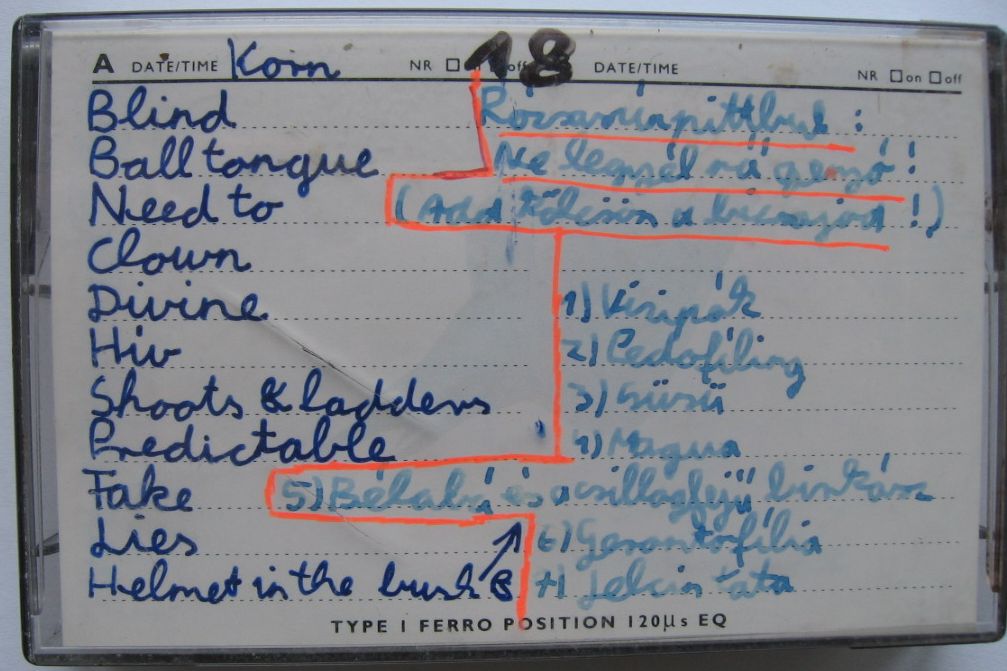 A DATE/TIME Korn NR on off 18 DATE/TIME NR on off
Blind
Ball tongue
Need to
Clown
Divine
Hiv
Shoots & ladders
Predictable
Fake
Lies
Helmet in the bush B
Rózsaszínpittbull :
Ne legyél rá
(Add kölcsön a bicsajod!)
1) Vízipók
2) Pedofíling
3) Süsü
4) Magua
5) Bélabá és a csillagfejű
6) Gerontofília
7) Jelcin tata
TYPE I FERRO POSITION 120µs EQ